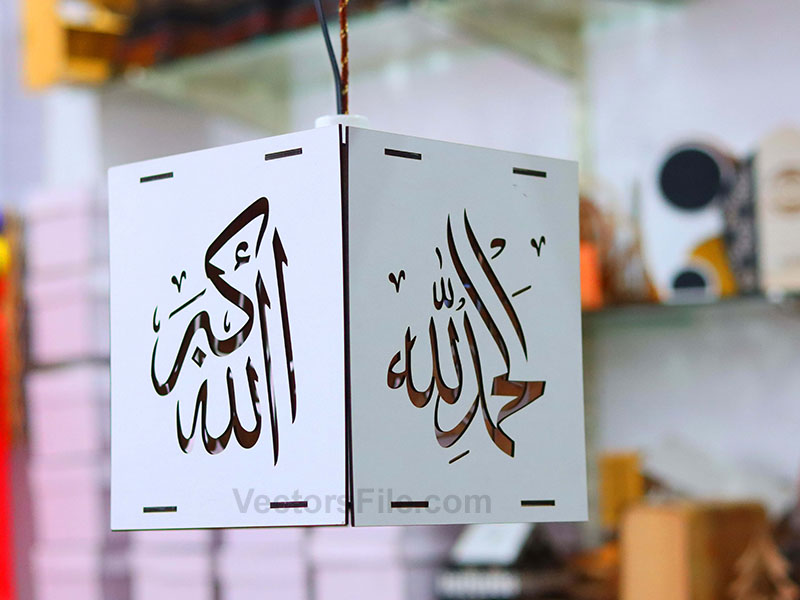 الله أكبر
الحمد لله
VectorsFile.com